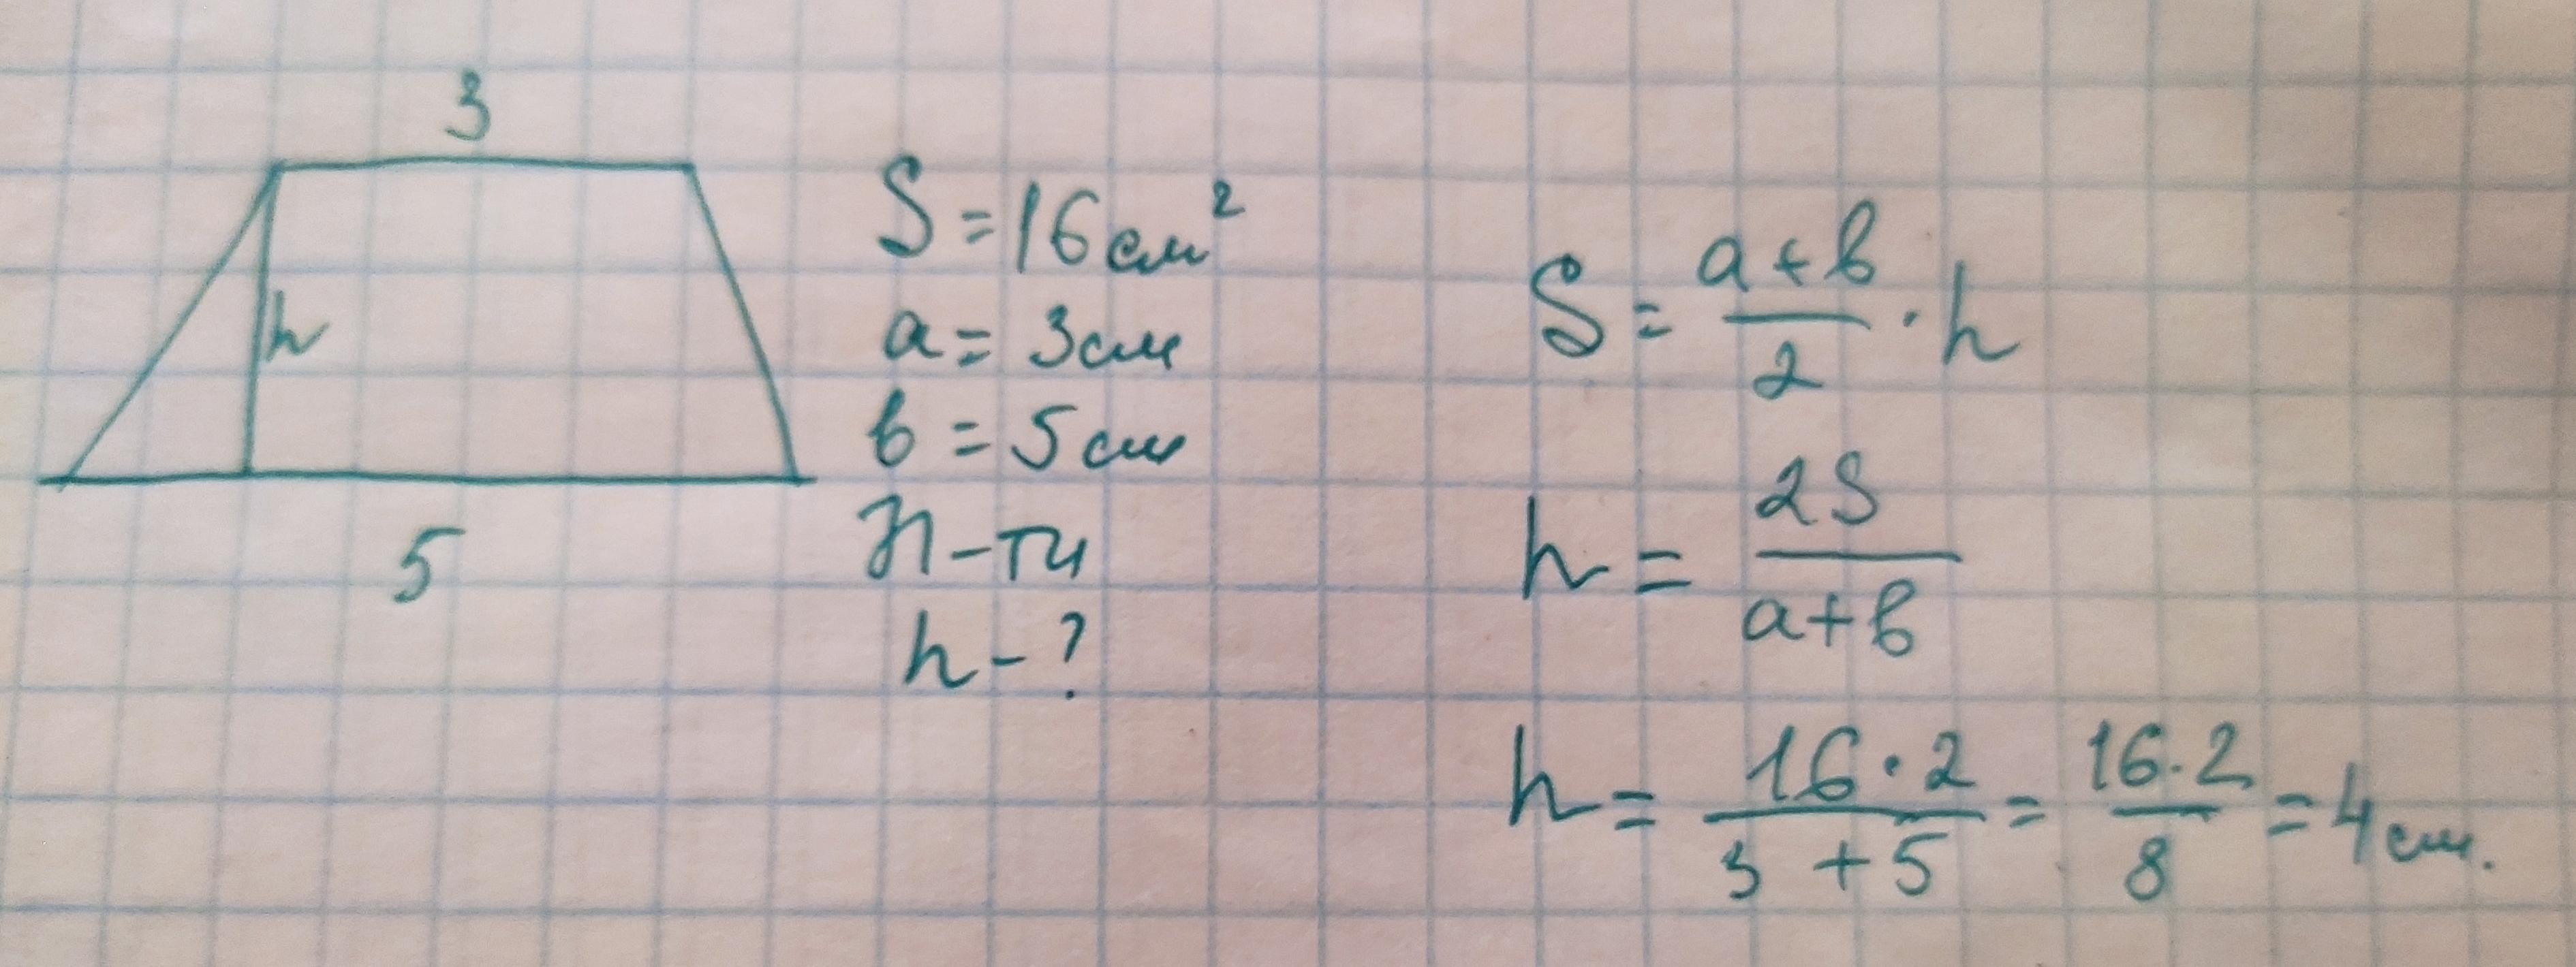 3
h
5
S = 16 см²
a = 3 см
в = 5 см
Зп-ти
h - ?
S = a + в / 2 · h
h = 2S / a + в
h = 16 · 2 / 3 + 5 = 16 · 2 / 8 = 4 см.